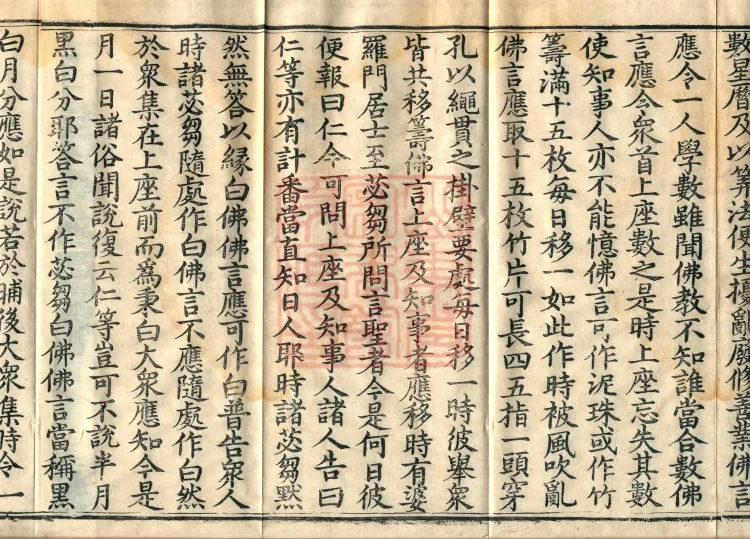 數星曆及以筭法便生擾亂廢修善業佛言
應令一人學數雖聞佛教不知誰當合數佛
言應令衆首上座數之是時上座忘失其數
使知事人亦不能憶佛言可作泥珠或作竹
籌滿十五枚每日移一如此作時被風吹亂
佛言應取十五枚竹片可長四五指一頭穿
孔以繩貫之掛壁要處每日移一時彼舉衆
皆共移籌佛言上座及知事者應移時有婆
羅門居士至苾芻所問言聖者今是何日彼
便報曰仁今可問上座及知事人諸人告曰
仁等亦有計番當直知日人耶時諸苾芻默
然無答以緣白佛佛言應可作白普告衆人
時諸苾芻隨處作白佛言不應隨處作白然
於衆集在上座前而爲秉白大衆應知今是
月一日諸俗聞說復云仁等豈可不說半月
黑白分耶答言不作苾芻白佛佛言當稱黑
白月分應如是說若於晡後大衆集時令一